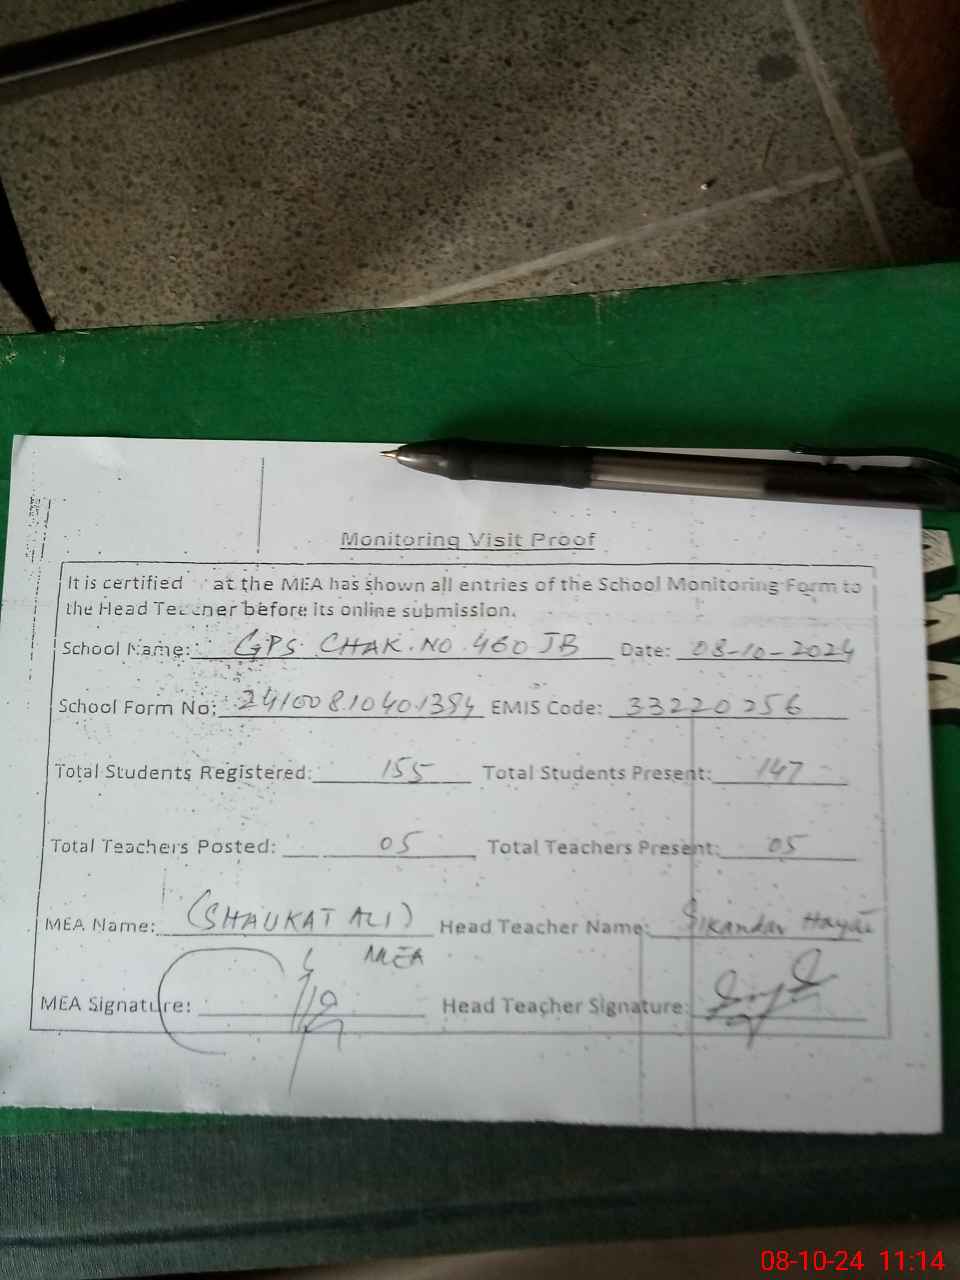 Monitoring Visit Proof
It is certified at the MEA has shown all entries of the School Monitoring Form to
the Head Teacher before its online submission.
School Name: GPS. CHAK. NO. 460 JB Date: 08-10-2024
School Form No: 24100810401394 EMIS Code: 33220256
Total Students Registered: 155 Total Students Present: 147
Total Teachers Posted: 05 Total Teachers Present: 05
MEA Name: (SHAUKAT ALI) Head Teacher Name: Sikandar Hayat
MEA
MEA Signature: Head Teacher Signature:
08-10-24 11:14